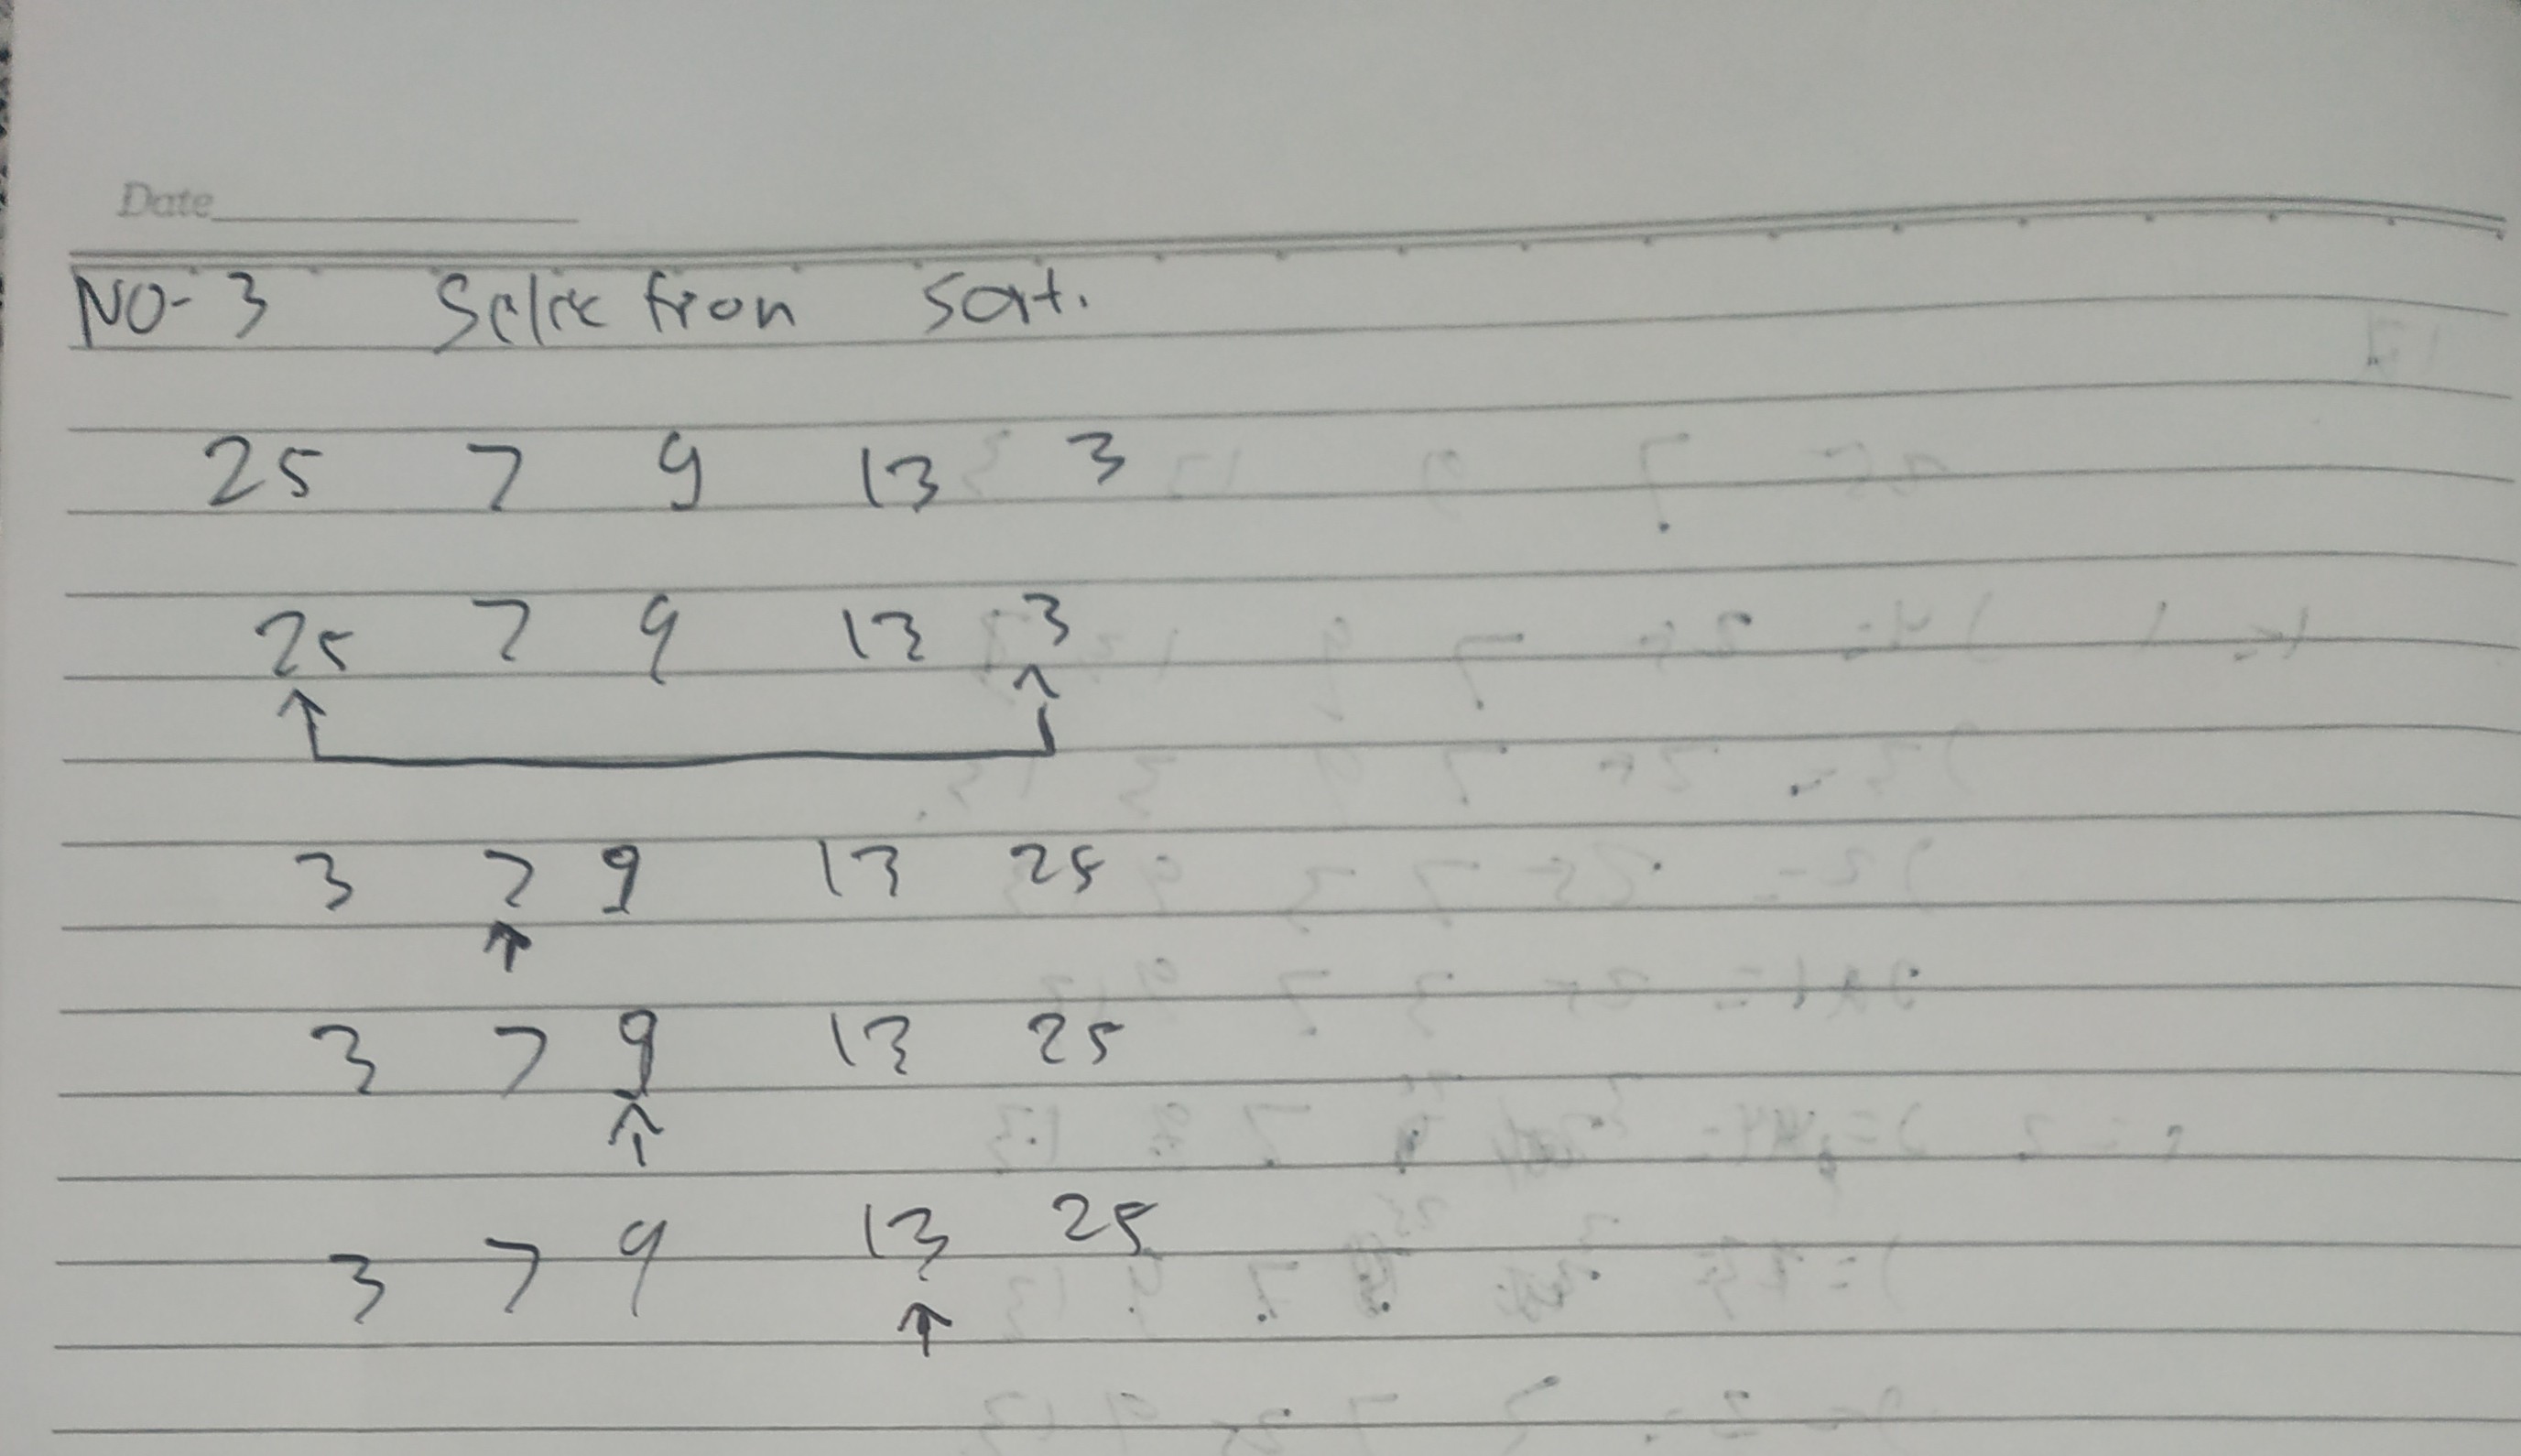 Date
NO-3 Selection Sort.
25 7 9 13 3
25 7 9 13 3
3 7 9 13 25
3 7 9 13 25
3 7 9 13 25